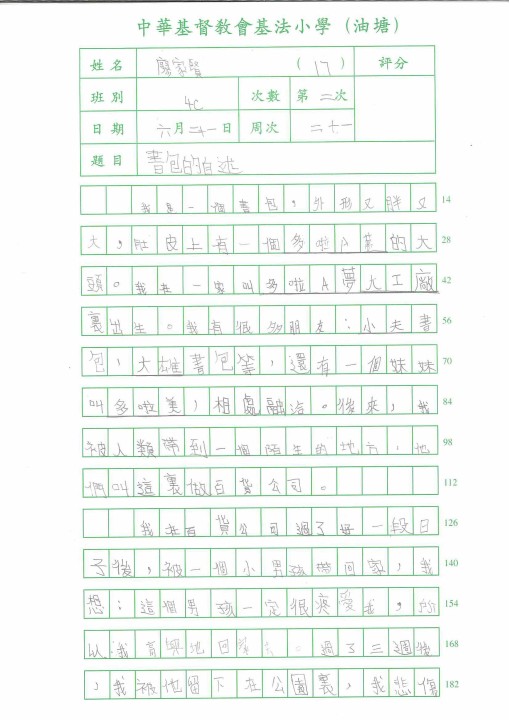 中華基督教會基法小學（油塘）
姓名 廖家賢 （17） 評分
班別 4C 次數 第二次
日期 六月二十一日 周次 二十一
題目 書包的自述
我是一個書包，外形又胖又 14
大，肚皮上有一個多啦A夢的大 28
頭。我在一家叫多啦A夢大工廠 42
裏出生。我有很多朋友：小夫書 56
包，大雄書包等，還有一個妹妹 70
叫多啦美，相處融洽。後來，我 84
被人類帶到一個陌生的地方，他 98
們叫這裏做百貨公司。 112
我在百貨公司過了好一段日 126
子後，被一個小男孩帶回家，我 140
想：這個男孩一定很疼愛我，所 154
以我高興地回家去。過了三週後 168
，我被他留下在公園裏，我悲傷 182